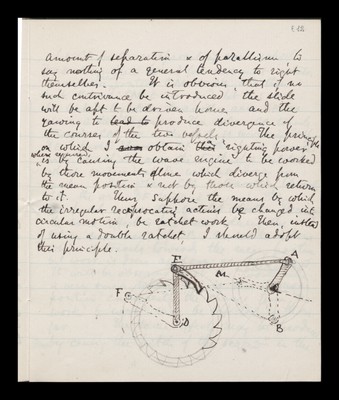 12
amount of separation & of parallism, to
say nothing of a general tendency to right
themselves. It is obvious that if no
such contrivance be introduced the stride
will be apt to be driven home and the
yawing to lead to produce divergence of
the courses of the two vessels. The principle
on which I obtain this righting power
where expressed
is by causing the wave engine to be worked
by those movements alone which diverge from
the mean position & not by those which return
to it. Thus suppose the means by which
the irregular reciprocating action is changed into
circular motion, be ratchet work, then instead
of using a double ratchet, I should adopt
this principle.
E
A
M
F
D
B